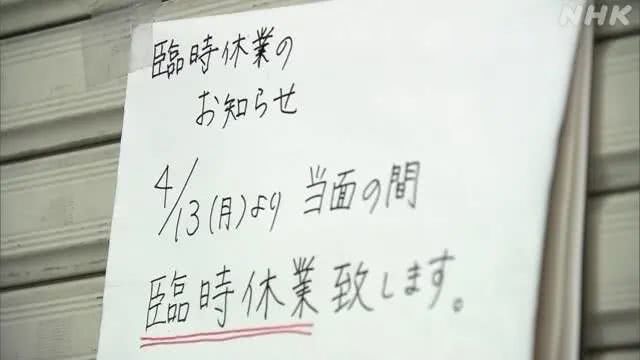 NHK
臨時休業の
お知らせ
4/13(月)より 当面の間
臨時休業致します。